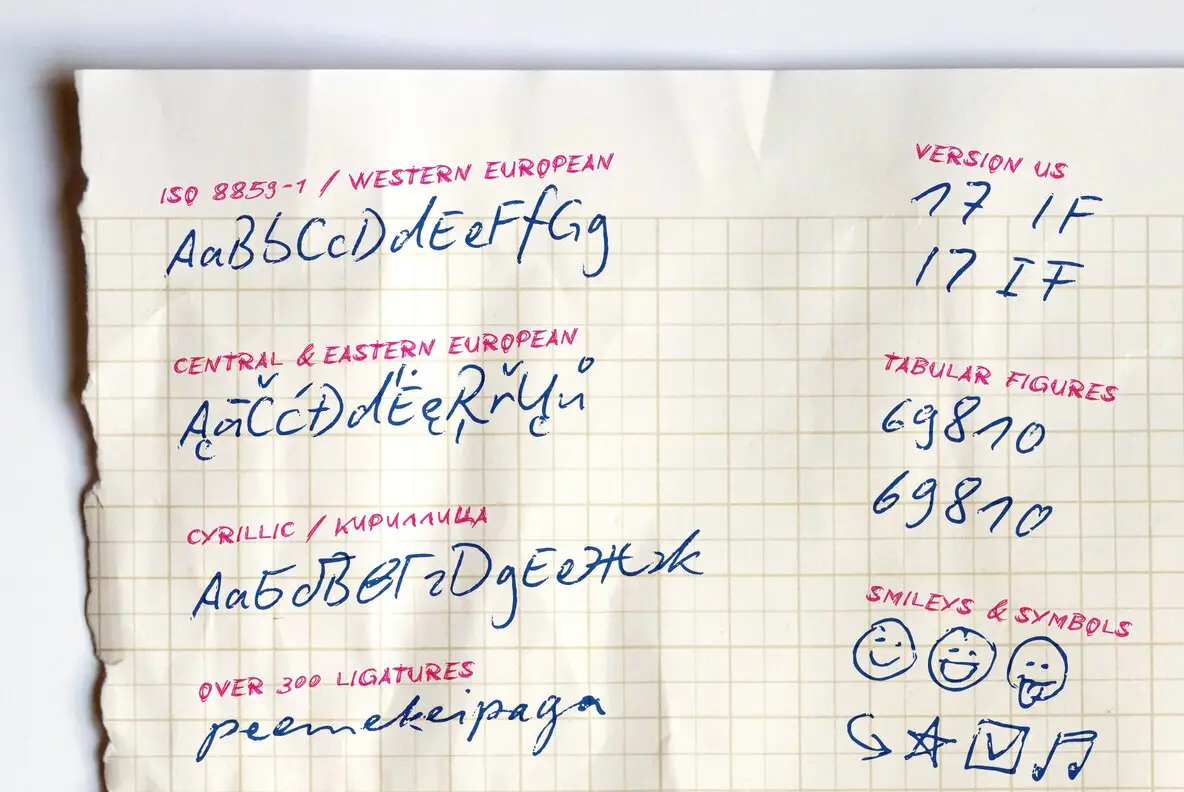 ISO 8859-1 / WESTERN EUROPEAN
AaBbCcDdEeFfGg
CENTRAL & EASTERN EUROPEAN
ĄāČćĐdËęŖřŲů
CYRILLIC / КИРИЛЛИЦА
АаБбВвГгДдЕеЖжк
OVER 300 LIGATURES
peemekeipaga
VERSION US
17 IF
17 IF
TABULAR FIGURES
69810
69810
SMILEYS & SYMBOLS